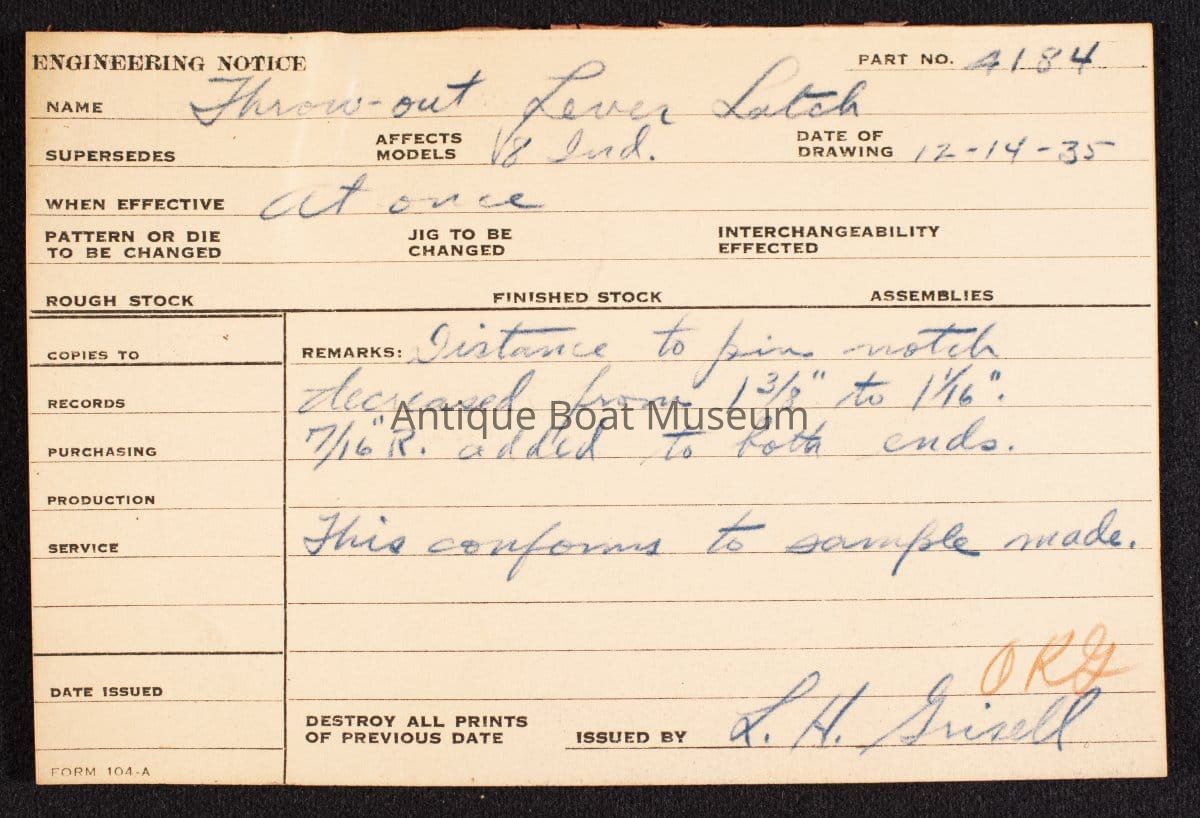 ENGINEERING NOTICE PART NO. 4184
NAME Throw-out Lever Latch
SUPERSEDES AFFECTS MODELS V8 Ind. DATE OF DRAWING 12-14-35
WHEN EFFECTIVE At once
PATTERN OR DIE TO BE CHANGED JIG TO BE CHANGED INTERCHANGEABILITY EFFECTED
ROUGH STOCK FINISHED STOCK ASSEMBLIES
COPIES TO REMARKS: Distance to pin notch
RECORDS decreased from 1 3/8" to 1 1/16".
Antique Boat Museum
PURCHASING 7/16" R. added to both ends.
PRODUCTION
SERVICE This conforms to sample made.
ORG
DATE ISSUED
DESTROY ALL PRINTS OF PREVIOUS DATE ISSUED BY L. H. Grisell
FORM 104-A